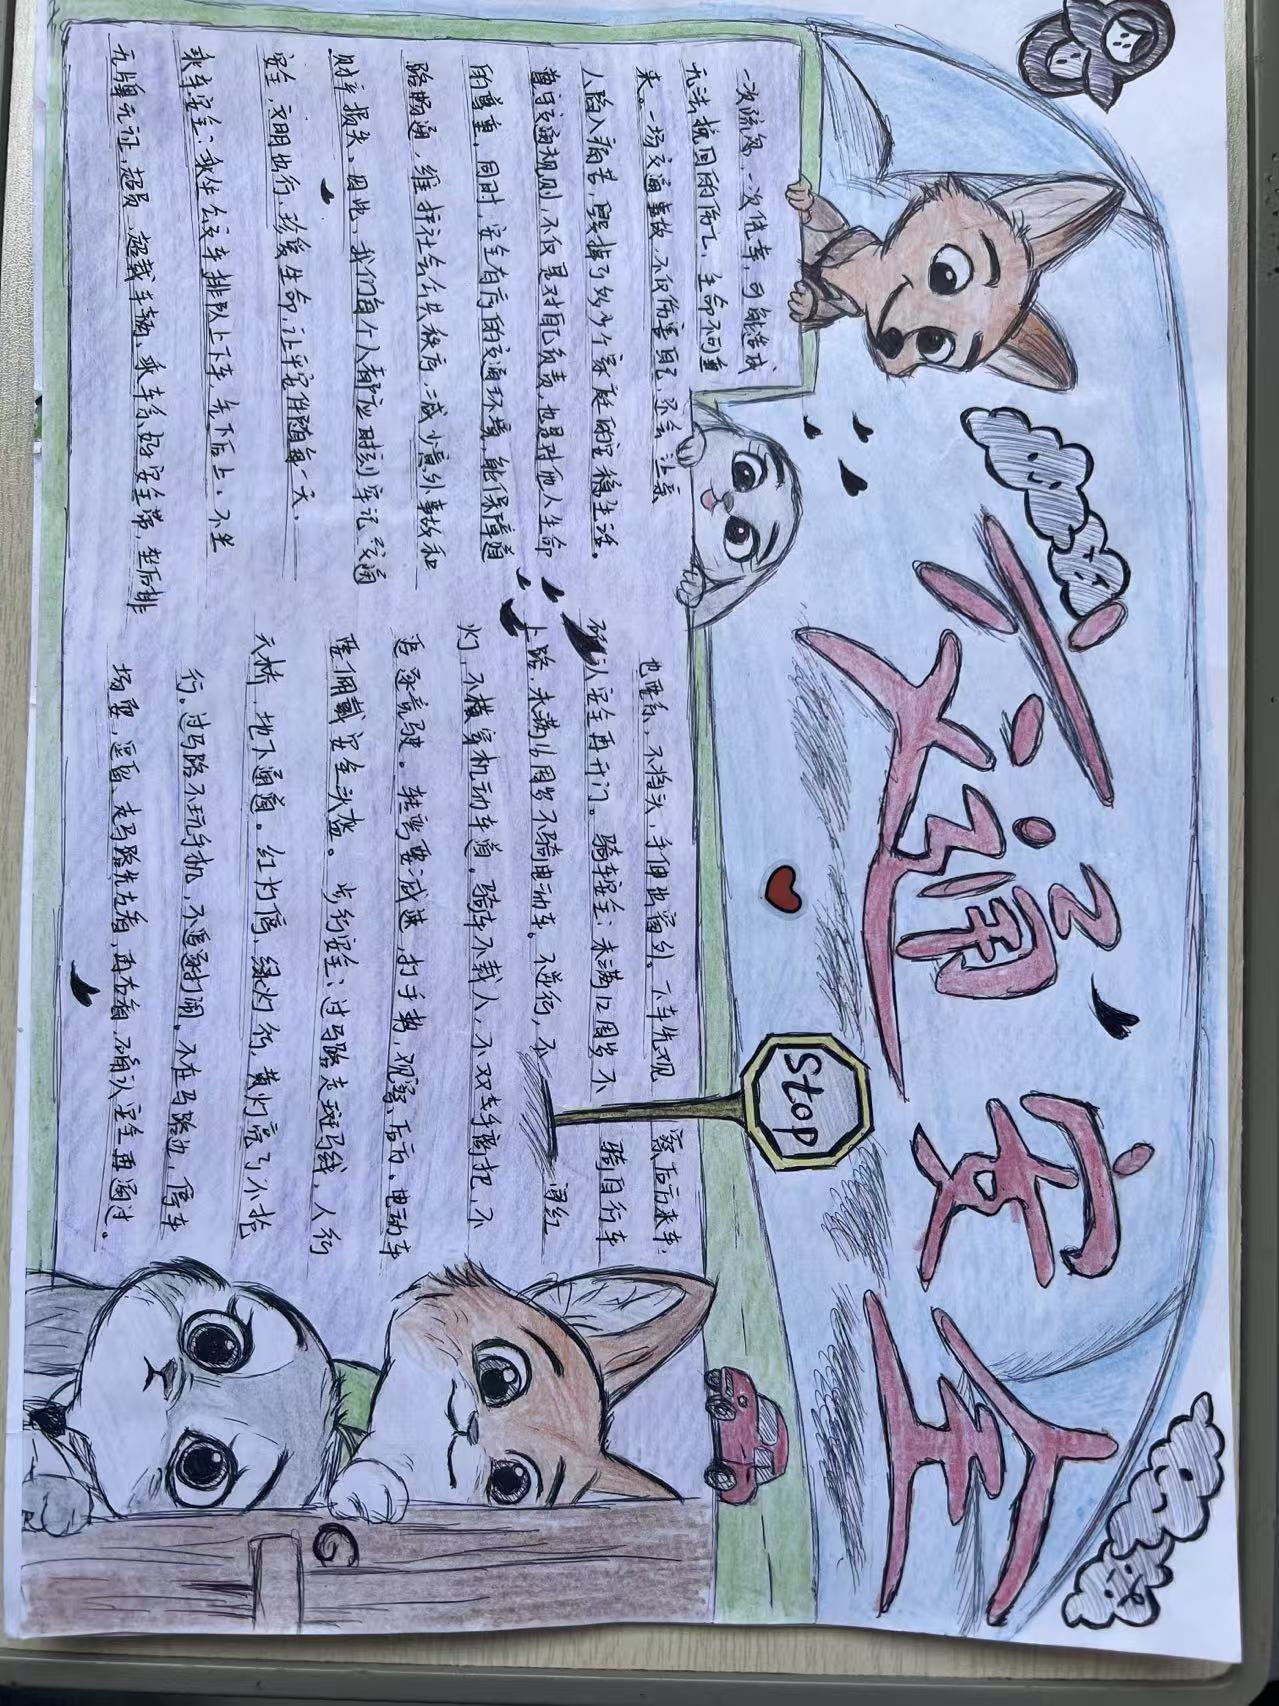 交通安全
Stop
一次疏忽,一次侥幸,可能造成
无法挽回的伤亡,生命不可重
来。一场交通事故,不仅伤害自己,还会让亲
人陷入痛苦,毁掉了多少个家庭的安稳生活。
遵守交通规则,不仅是对自己负责,也是对他人生命
的尊重。同时,安全有序的交通环境,能保障道
路畅通,维护社会公共秩序,减少意外事故和
财产损失。因此,我们每个人都应时刻牢记交通
安全,文明出行,珍爱生命,让平安伴随每一天。
乘车安全:乘坐公交车排队上下车,先下后上,不坐
无牌无证,超员,超载车辆。乘车系好安全带,坐后排
也要系,不抬头,手伸出窗外。下车先观察后方来车,
确认安全再开门。骑车安全:未满12周岁不骑自行车
上路,未满16周岁不骑电动车。不逆行,不闯红
灯,不横穿机动车道。骑车不载人,不双手离把,不
追逐竞驶。转弯要减速,打手势,观察后面。电动车
要佩戴安全头盔。步行安全:过马路走斑马线,人行
天桥,地下通道。红灯停,绿灯行,黄灯亮了不抢
行。过马路不玩手机,不追逐打闹。不在马路边,停车
场玩耍,逗留。走马路先左看,再右看,确认安全再通过。